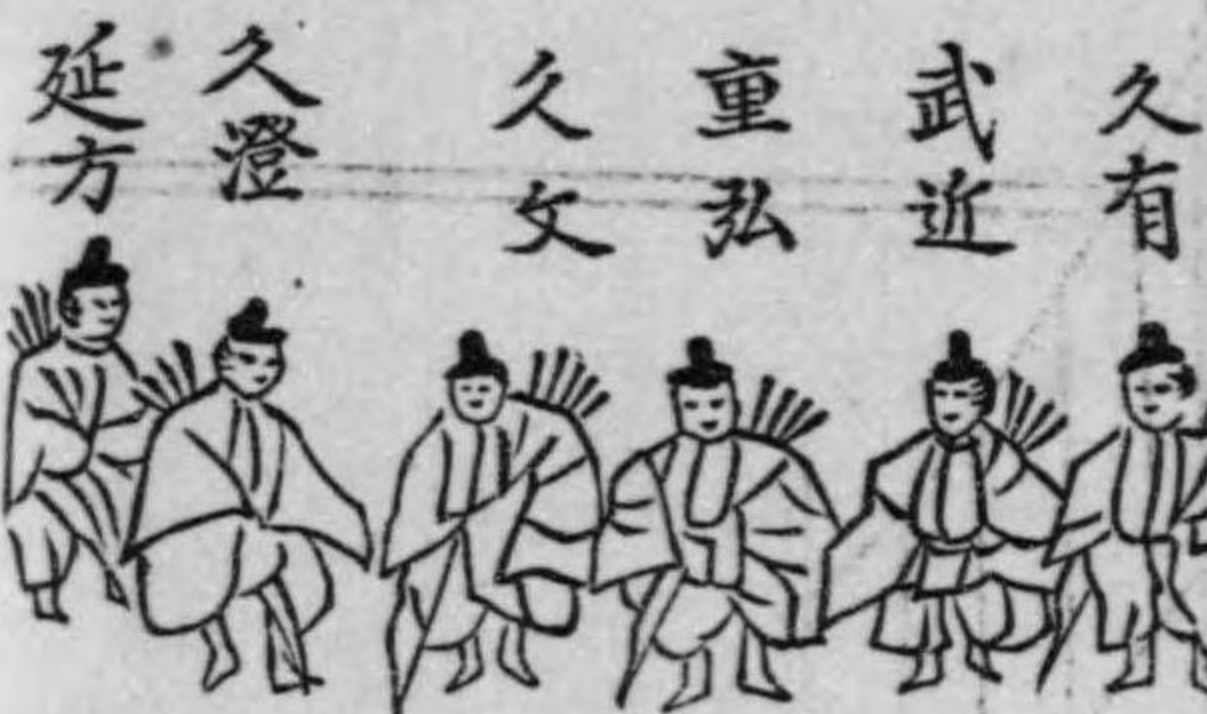 久有
武近
重弘
久文
久澄
延方